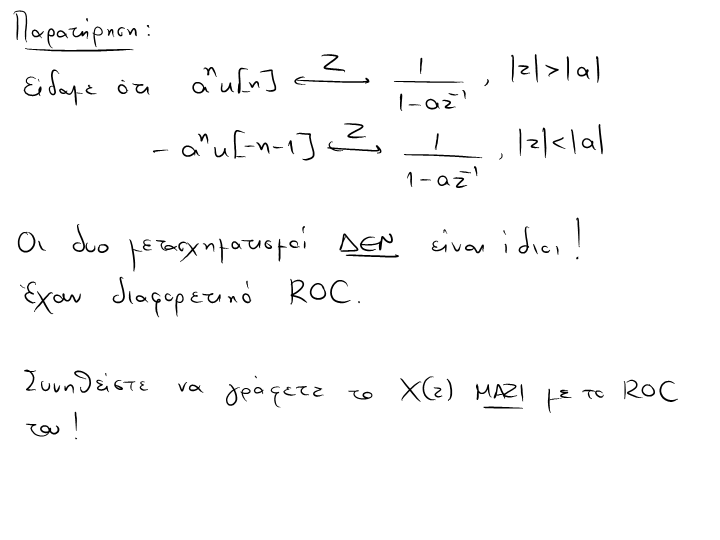 Παρατήρηση:
Είδαμε ότι aⁿu[n] ⟷ᶻ 1/(1-az⁻¹), |z|>|a|
-aⁿu[-n-1] ⟷ᶻ 1/(1-az⁻¹), |z|<|a|
Οι δυο μετασχηματισμοί ΔΕΝ είναι ίδιοι!
Έχουν διαφορετικό ROC.
Συνηθείστε να γράφετε το X(z) ΜΑΖΙ με το ROC
του!